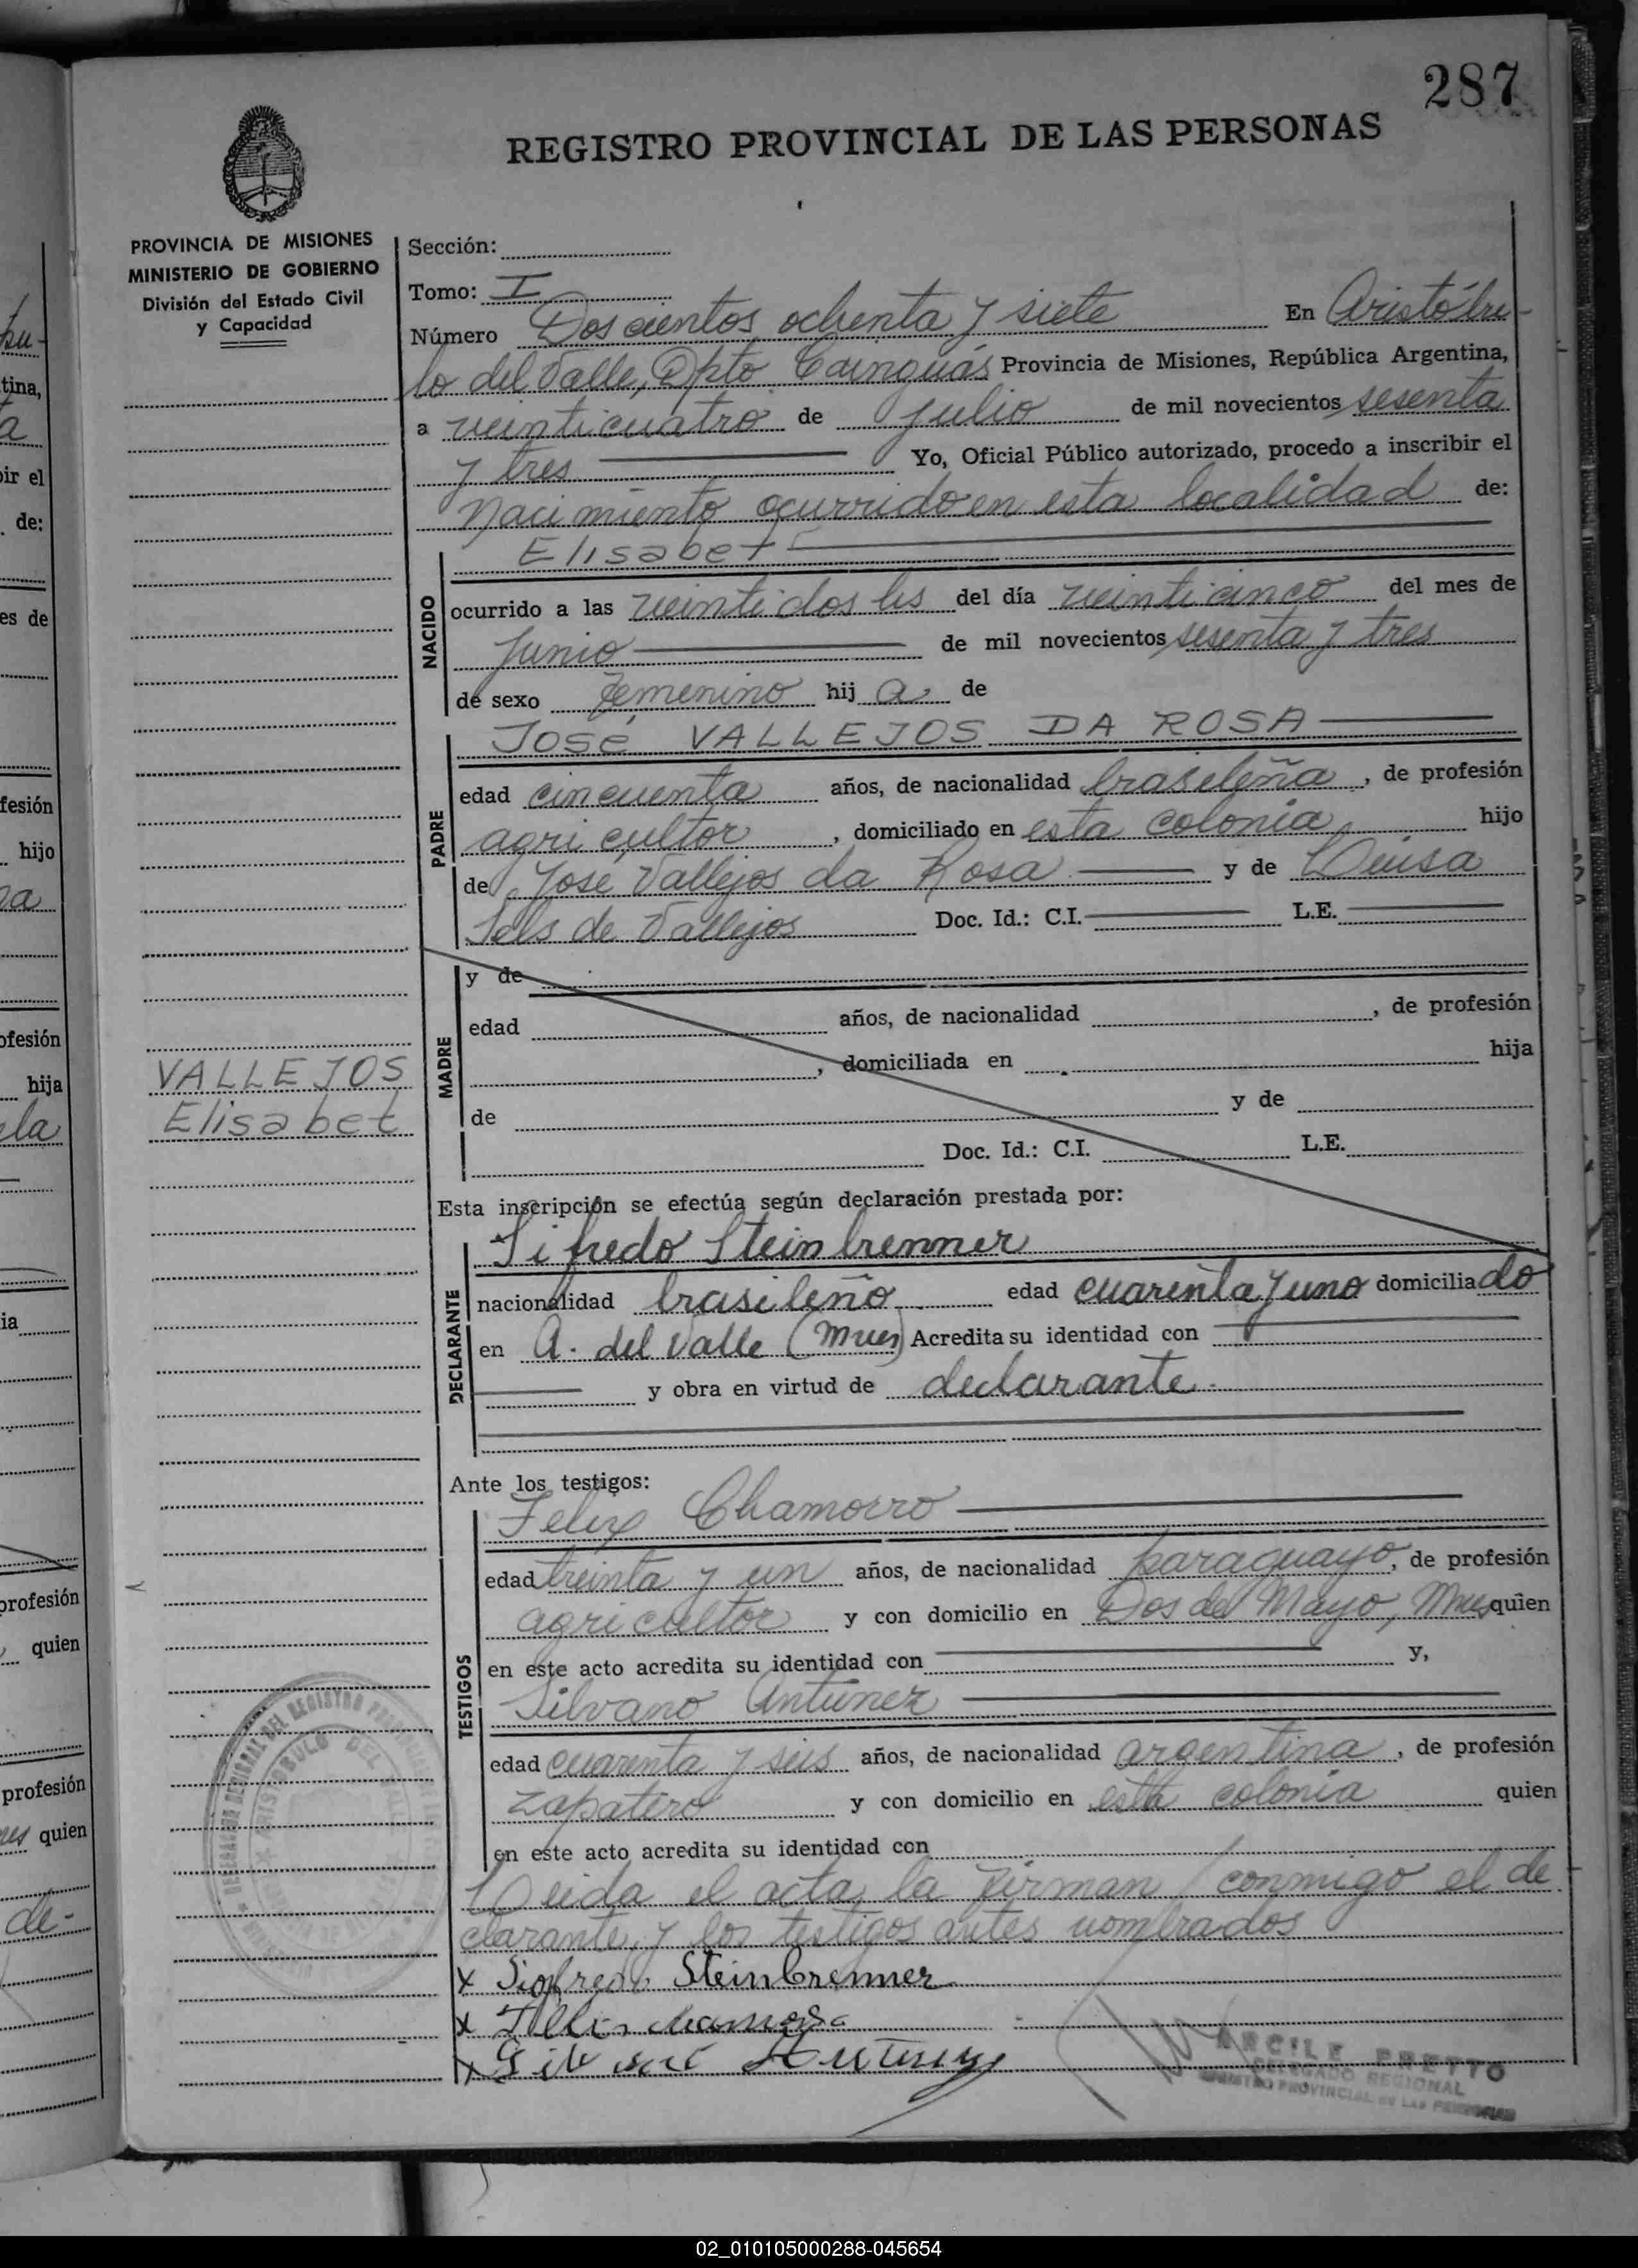 287
REGISTRO PROVINCIAL DE LAS PERSONAS
PROVINCIA DE MISIONES
MINISTERIO DE GOBIERNO
División del Estado Civil
y Capacidad
Sección:
Tomo: I
Número Doscientos ochenta y siete En Aristóbu-
lo del Valle, Dpto Cainguás Provincia de Misiones, República Argentina,
a veinticuatro de julio de mil novecientos sesenta
y tres Yo, Oficial Público autorizado, procedo a inscribir el
Nacimiento ocurrido en esta localidad de:
Elisabet
NACIDO
ocurrido a las veintidos hs del día veinticinco del mes de
Junio de mil novecientos sesenta y tres
de sexo femenino hij a de
José VALLEJOS DA ROSA
PADRE
edad cincuenta años, de nacionalidad brasileña, de profesión
agricultor, domiciliado en esta colonia hijo
de Jose Vallejos da Rosa y de Luisa
de Vallejos Doc. Id.: C.I. L.E.
MADRE
y de
edad años, de nacionalidad , de profesión
, domiciliada en hija
de y de
Doc. Id.: C.I. L.E.
VALLEJOS
Elisabet
Esta inscripción se efectúa según declaración prestada por:
Sifredo Steinbrenner
DECLARANTE
nacionalidad brasileño edad cuarenta y uno domiciliado
en A. del Valle (Mnes) Acredita su identidad con
y obra en virtud de declarante
Ante los testigos:
Felix Chamorro
TESTIGOS
edad treinta y un años, de nacionalidad paraguayo, de profesión
agricultor y con domicilio en Dos de Mayo, Mnes quien
en este acto acredita su identidad con y,
Silvano Antunez
edad cuarenta y seis años, de nacionalidad argentina, de profesión
zapatero y con domicilio en esta colonia quien
en este acto acredita su identidad con
Leida el acta, la firman conmigo el de
clarante, y los testigos antes nombrados
x Sigfredo Steinbrenner
x
x
ARCILE PRETTO
DELEGADO REGIONAL
REGISTRO PROVINCIAL DE LAS PERSONAS
DEL REGISTRO
ARISTOBULO DEL VALLE
02_010105000288-045654